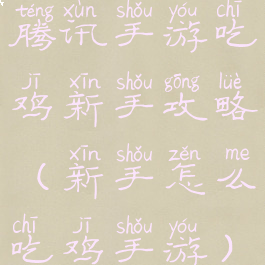 téng xùn shǒu yóu chī
腾讯手游吃
jī xīn shǒu gōng lüè
鸡新手攻略
xīn shǒu zěn me
(新手怎么
chī jī shǒu yóu
吃鸡手游)